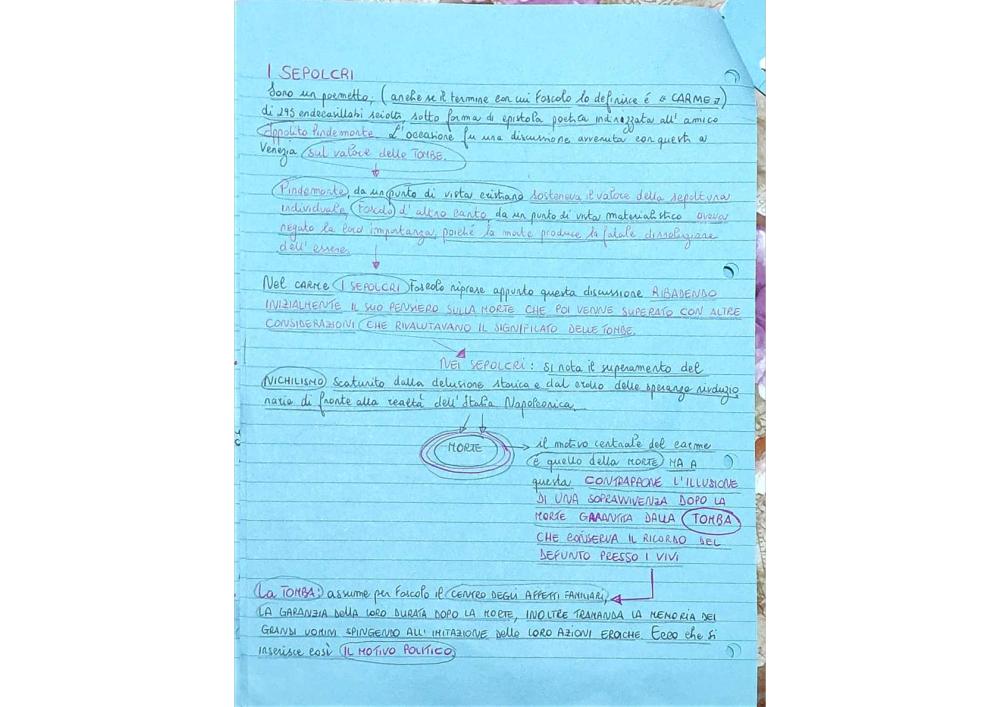 I SEPOLCRI
Sono un poemetto, (anche se il termine con cui Foscolo lo definisce é « CARME »)
di 295 endecasillabi sciolti, sotto forma di epistola poetica indirizzata all' amico
Ippolito Pindemonte. L'occasione fu una discussione avvenuta con questi a
Venezia sul valore delle TOMBE.
Pindemonte, da un punto di vista cristiano sosteneva il valore della sepoltura
individuale, Foscolo d' altro canto, da un punto di vista materialistico aveva
negato la loro importanza, poiché la morte produce la fatale dissoluzione
dell' essere.
Nel CARME I SEPOLCRI Foscolo riprese appunto questa discussione RIBADENDO
INIZIALMENTE IL SUO PENSIERO SULLA MORTE CHE POI VENNE SUPERATO CON ALTRE
CONSIDERAZIONI CHE RIVALUTAVANO IL SIGNIFICATO DELLE TOMBE.
NEI SEPOLCRI: si nota il superamento del
NICHILISMO scaturito dalla delusione storica e dal crollo delle speranze rivoluzio
narie di fronte alla realtà dell'Italia Napoleonica.
MORTE → il motivo centrale del carme
é quello della MORTE MA A
questa CONTRAPPONE L'ILLUSIONE
DI UNA SOPRAVVIVENZA DOPO LA
MORTE GARANTITA DALLA TOMBA
CHE CONSERVA IL RICORDO DEL
DEFUNTO PRESSO I VIVI
La TOMBA: assume per Foscolo il CENTRO DEGLI AFFETTI FAMILIARI,
LA GARANZIA DELLA LORO DURATA DOPO LA MORTE, INOLTRE TRAMANDA LA MEMORIA DEI
GRANDI UOMINI SPINGENDO ALL' IMITAZIONE DELLE LORO AZIONI EROICHE. Ecco che si
inserisce così IL MOTIVO POLITICO